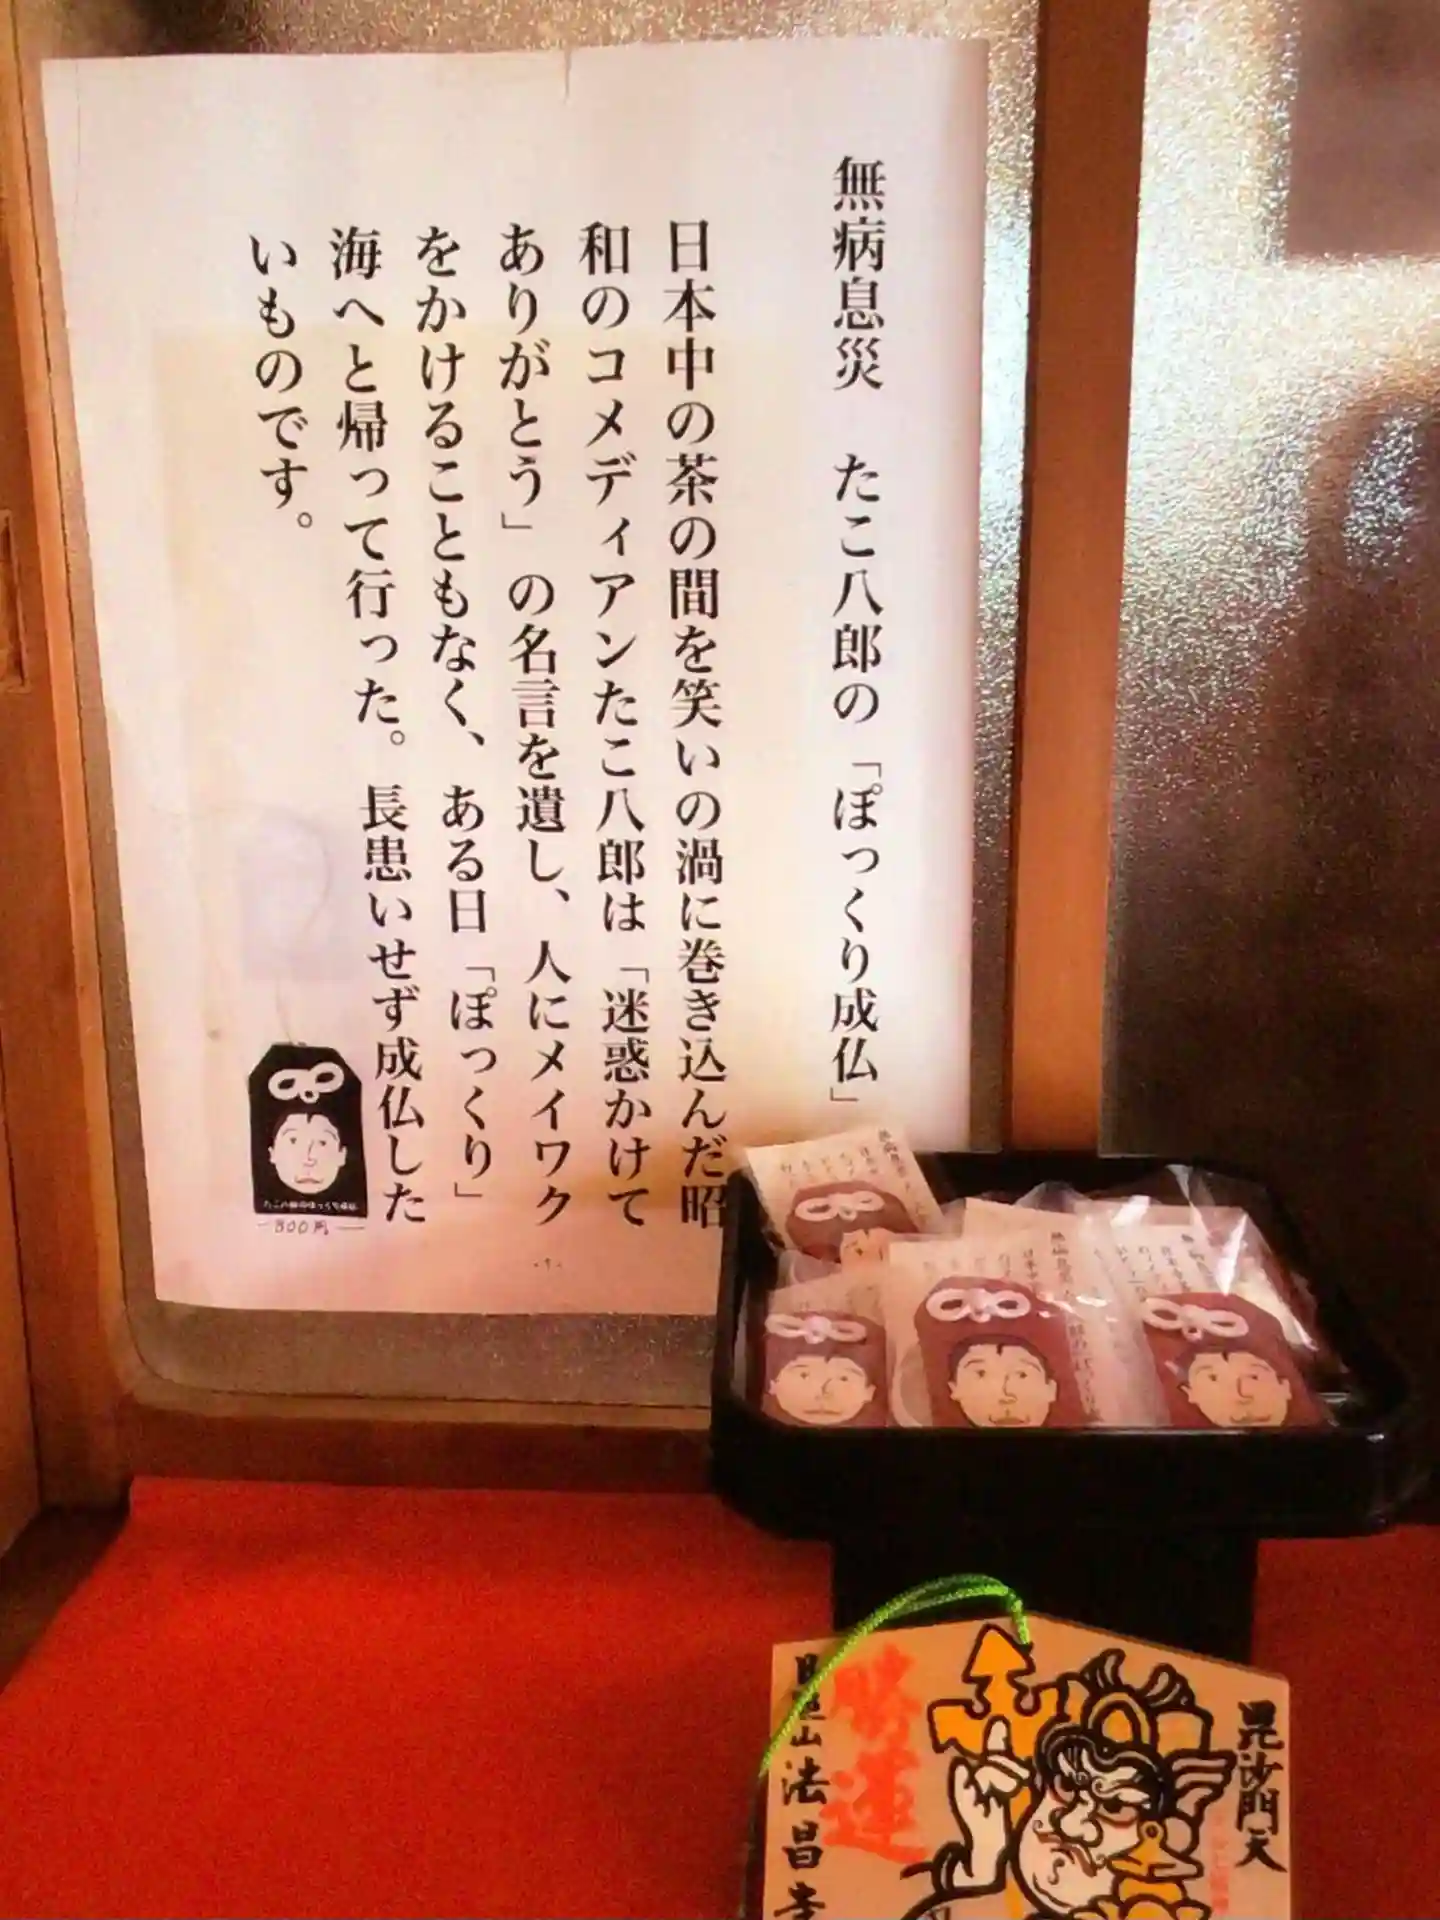 無病息災　たこ八郎の「ぽっくり成仏」
日本中の茶の間を笑いの渦に巻き込んだ昭
和のコメディアンたこ八郎は「迷惑かけて
ありがとう」の名言を遺し、人にメイワク
をかけることもなく、ある日「ぽっくり」
海へと帰って行った。長患いせず成仏した
いものです。
たこ八郎のぽっくり成仏
800円
毘沙門天
勝運
法昌寺